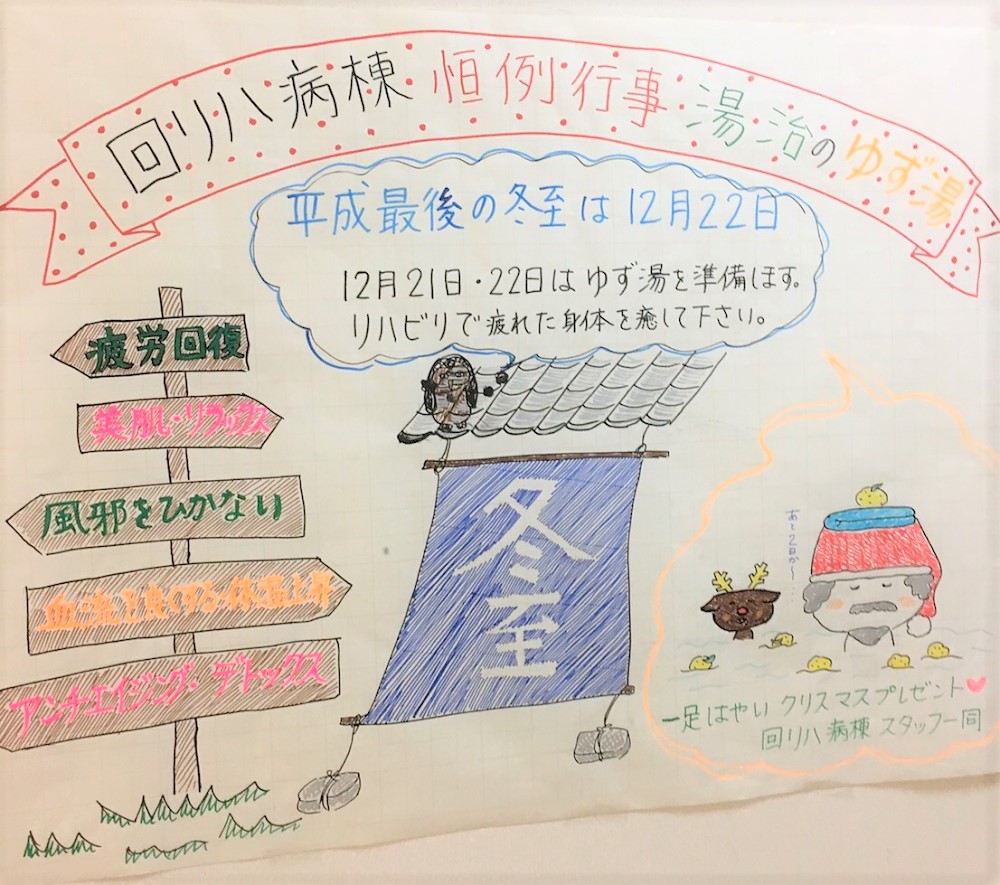 回リハ病棟 恒例行事 湯治のゆず湯
平成最後の冬至は12月22日
12月21日・22日はゆず湯を準備します。
リハビリで疲れた身体を癒して下さい。
疲労回復
美肌・リラックス
風邪をひかない
血流を良くする・体温上昇
アンチエイジング・デトックス
冬至
あと2日か〜....
一足はやい クリスマスプレゼント♥
回リハ病棟 スタッフ一同